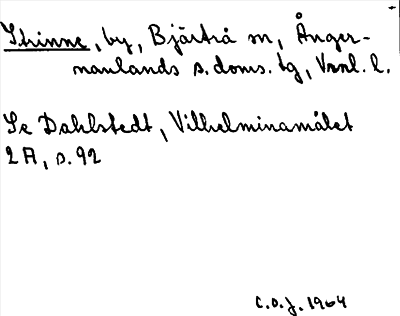 Strinne, by, Bjärtrå sn, Ånger-
manlands s. doms. tg, Vnl. l.
Se Dahlstedt, Vilhelminamålet
2 A, s. 92
C.O.J. 1964